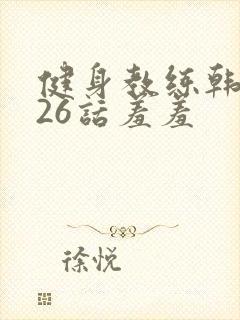 健身教练韩
26話羞羞
徐悦